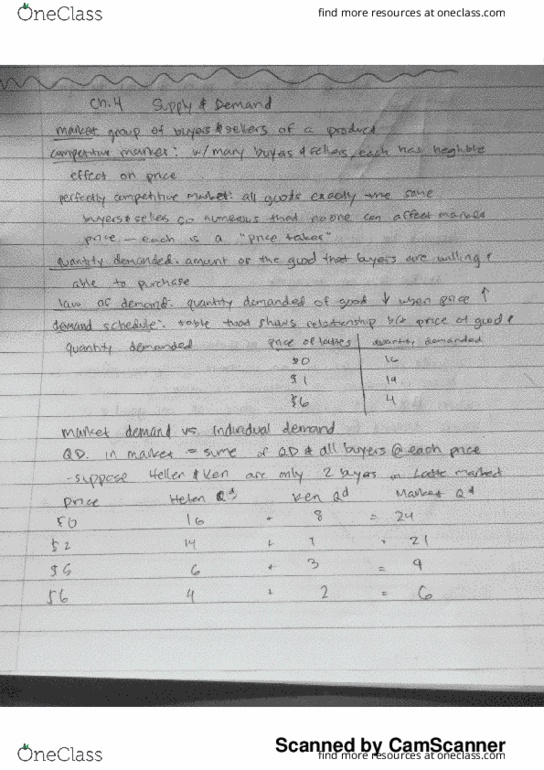 OneClass find more resources at oneclass.com
Ch.4 Supply & Demand
market group of buyers & sellers of a product
competitive market: w/ many buyers & sellers, each has neglible
effect on price
perfectly competitive market: all goods exactly the same
buyers & selles so numerous that no one can affect market
price – each is a "price taker"
quantity demanded: amount of the good that buyers are willing &
able to purchase
law of demand: quantity demanded of good ↓ when price ↑
demand schedule: table that shows relationship b/t price of good &
quantity demanded Price of lattes quantity demanded
$0 16
$1 14
$6 4
market demand vs. individual demand
QD. in market = sume of QD of all buyers @ each price
- suppose Hellen & Ken are only 2 buyers in Latte market
Price Helen Qd Ken Qd Market Qd
$0 16 + 8 = 24
$2 14 + 7 = 21
$5 6 + 3 = 9
$6 4 + 2 = 6
Scanned by CamScanner
OneClass find more resources at oneclass.com